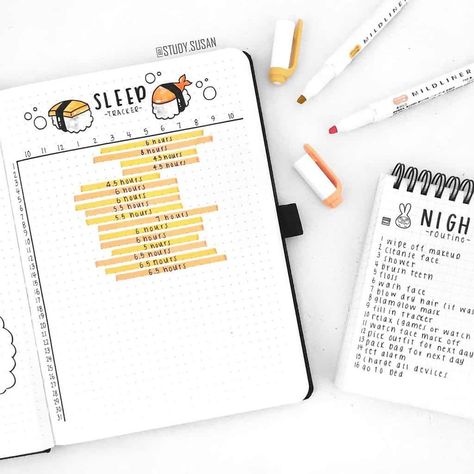 @STUDY.SUSAN
SLEEP
-TRACKER-
10 11 12 1 2 3 4 5 6 7 8 9 10
6 hours
8 hours
4.5 hours
4.5 hours
4.5 hours
6 hours
5.5 hours
5.5 hours
7 hours
6 hours
6 hours
5 hours
6.5 hours
6.5 hours
6.5 hours
MILDLINER
MILDLINER
NIGH
-routine-
1 wipe off makeup
2 cleanse face
3 shower
4 brush teeth
5 floss
6 wash face
7 blow dry hair (if wa
8 glamglow mask
9 fill in tracker
10 relax (games or watch
11 watch face mask off
12 pick outfit for next day
13 pack bag for next day
14 set alarm
15 charge all devices
16 go to bed